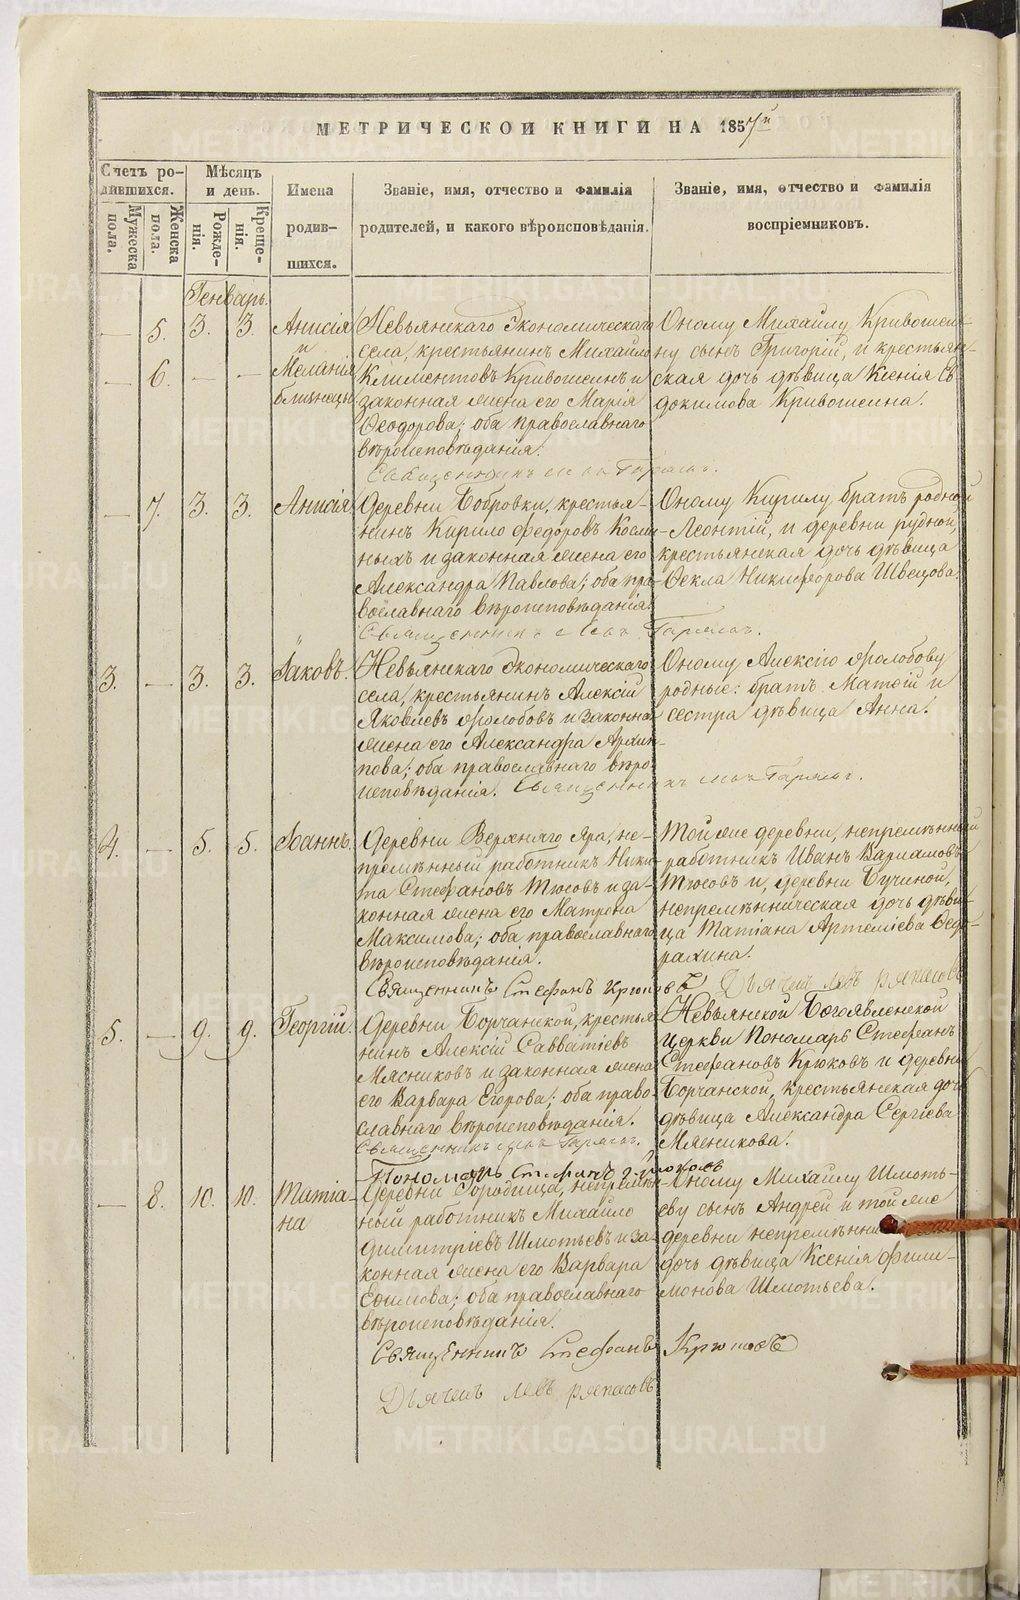 МЕТРИЧЕСКОЙ КНИГИ НА 1857й
Счетъ ро-
дившихся.
Мужеска
пола.
Женска
пола.
Мѣсяцъ
и день.
Рожде-
нія.
Креще-
нія.
Имена
родив-
шихся.
Званіе, имя, отчество и фамилія
родителей, и какого вѣроисповѣданія.
Званіе, имя, отчество и фамилія
воспріемниковъ.
Генварь.
— 5. 3. 3.
Анисія
и
— 6. — —
Меланія
близнецы.
Невьянскаго Экономическаго
села, крестьянинъ Михайло
Климентовъ Кривошеинъ и
законная жена его Марія
Ѳеодорова; оба православнаго
вѣроисповѣданія.
Оному Михайлу Кривошеи-
ну сынъ Григорій, и крестьян-
ская дочь дѣвица Ксенія Ев-
докимова Кривошеина.
Священникъ
— 7. 3. 3.
Анисія
Деревни Бобровки, крестья-
нинъ Кирило Федоровъ Косми-
ныхъ и законная жена его
Александра Павлова; оба пра-
вославнаго вѣроисповѣданія.
Оному Кирилу братъ родной
Леонтій, и деревни рудной,
крестьянская дочь дѣвица
Ѳекла Никифорова Швецова.
Священникъ
3. — 3. 3.
Іаковъ.
Невьянскаго Экономическаго
села, крестьянинъ Алексій
Яковлевъ Фролововъ и законная
жена его Александра Архип-
пова; оба православнаго вѣро-
исповѣданія.
Оному Алексію Фролобову
родные: братъ Матѳій и
сестра дѣвица Анна.
Священникъ
4. — 5. 5.
Іоаннъ.
Деревни Верхняго Яра, не-
премѣнный работникъ Ники-
та Стефановъ Тюсовъ и за-
конная жена его Матрона
Максимова; оба православнаго
вѣроисповѣданія.
Той же деревни, непремѣнный
работникъ Иванъ Варламовъ
Тюсовъ и, деревни Бучиной,
непремѣнническая дочь дѣви-
ца Татіана Артеміева Ѳеф-
рахина.
Священникъ Стефанъ Крюковъ
Дьячекъ Левъ
5. — 9. 9.
Георгій.
Деревни Борчанской, крестья-
нинъ Алексій Савватіевъ
Мясниковъ и законная жена
его Варвара Егорова; оба право-
славнаго вѣроисповѣданія.
Невьянской Богоявленской
церкви Пономарь Стефанъ
Стефановъ Крюковъ и деревни
Борчанской, крестьянская дочь
дѣвица Александра Сергіева
Мясникова.
Священникъ
Пономарь Стефанъ Крюковъ
— 8. 10. 10.
Татіа-
на
Деревни Городища, непремѣн-
ный работникъ Михайло
Димитріевъ Шмотьевъ и за-
конная жена его Варвара
Ефимова; оба православнаго
вѣроисповѣданія.
Оному Михайлу Шмоть-
еву сынъ Андрей и той же
деревни
дочь дѣвица Ксенія Фили-
монова Шмотьева.
Священникъ Стефанъ Крюковъ
Дьячекъ Левъ
METRIKI.GASO-URAL.RU